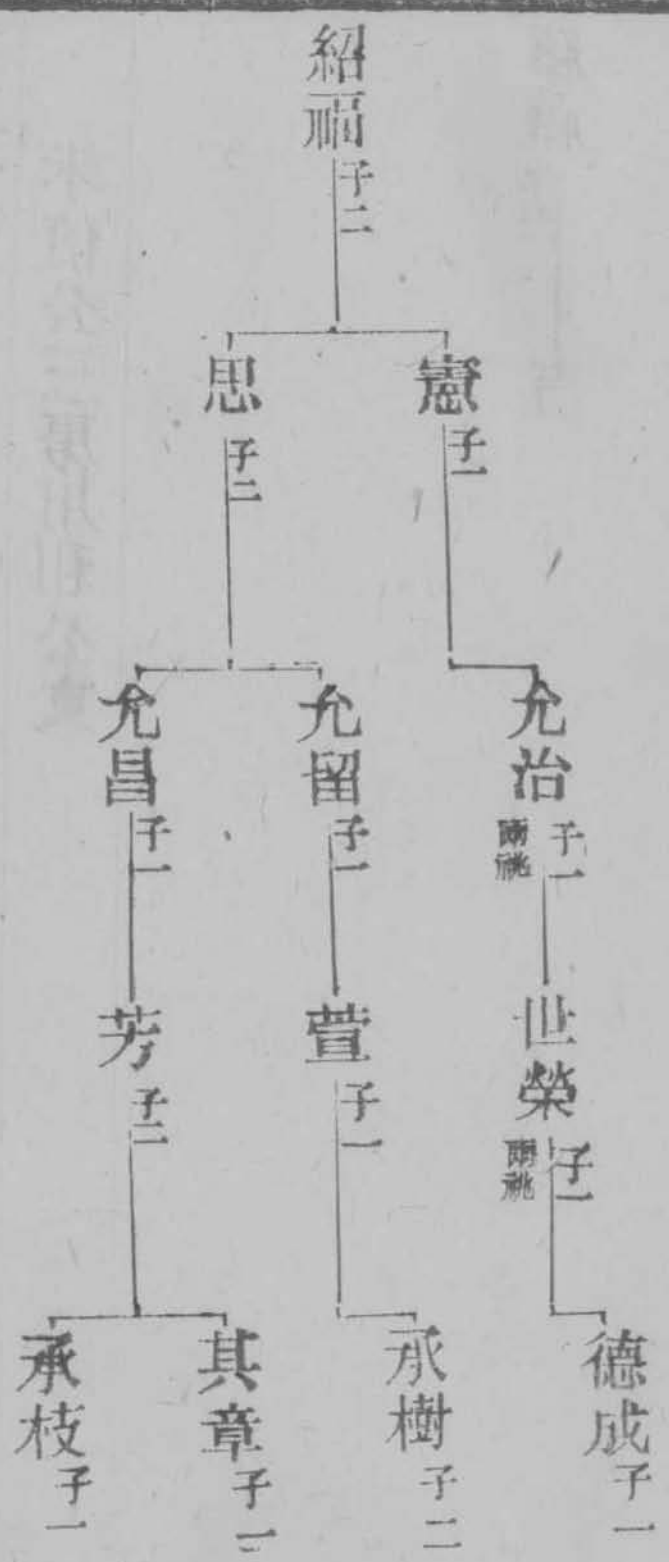 紹福
子二
憲
子一
思
子二
允治
子一
兩祧
允留
子一
允昌
子一
世榮
子一
兩祧
萱
子一
芳
子二
德成
子一
承樹
子二
其章
子一
承枝
子一